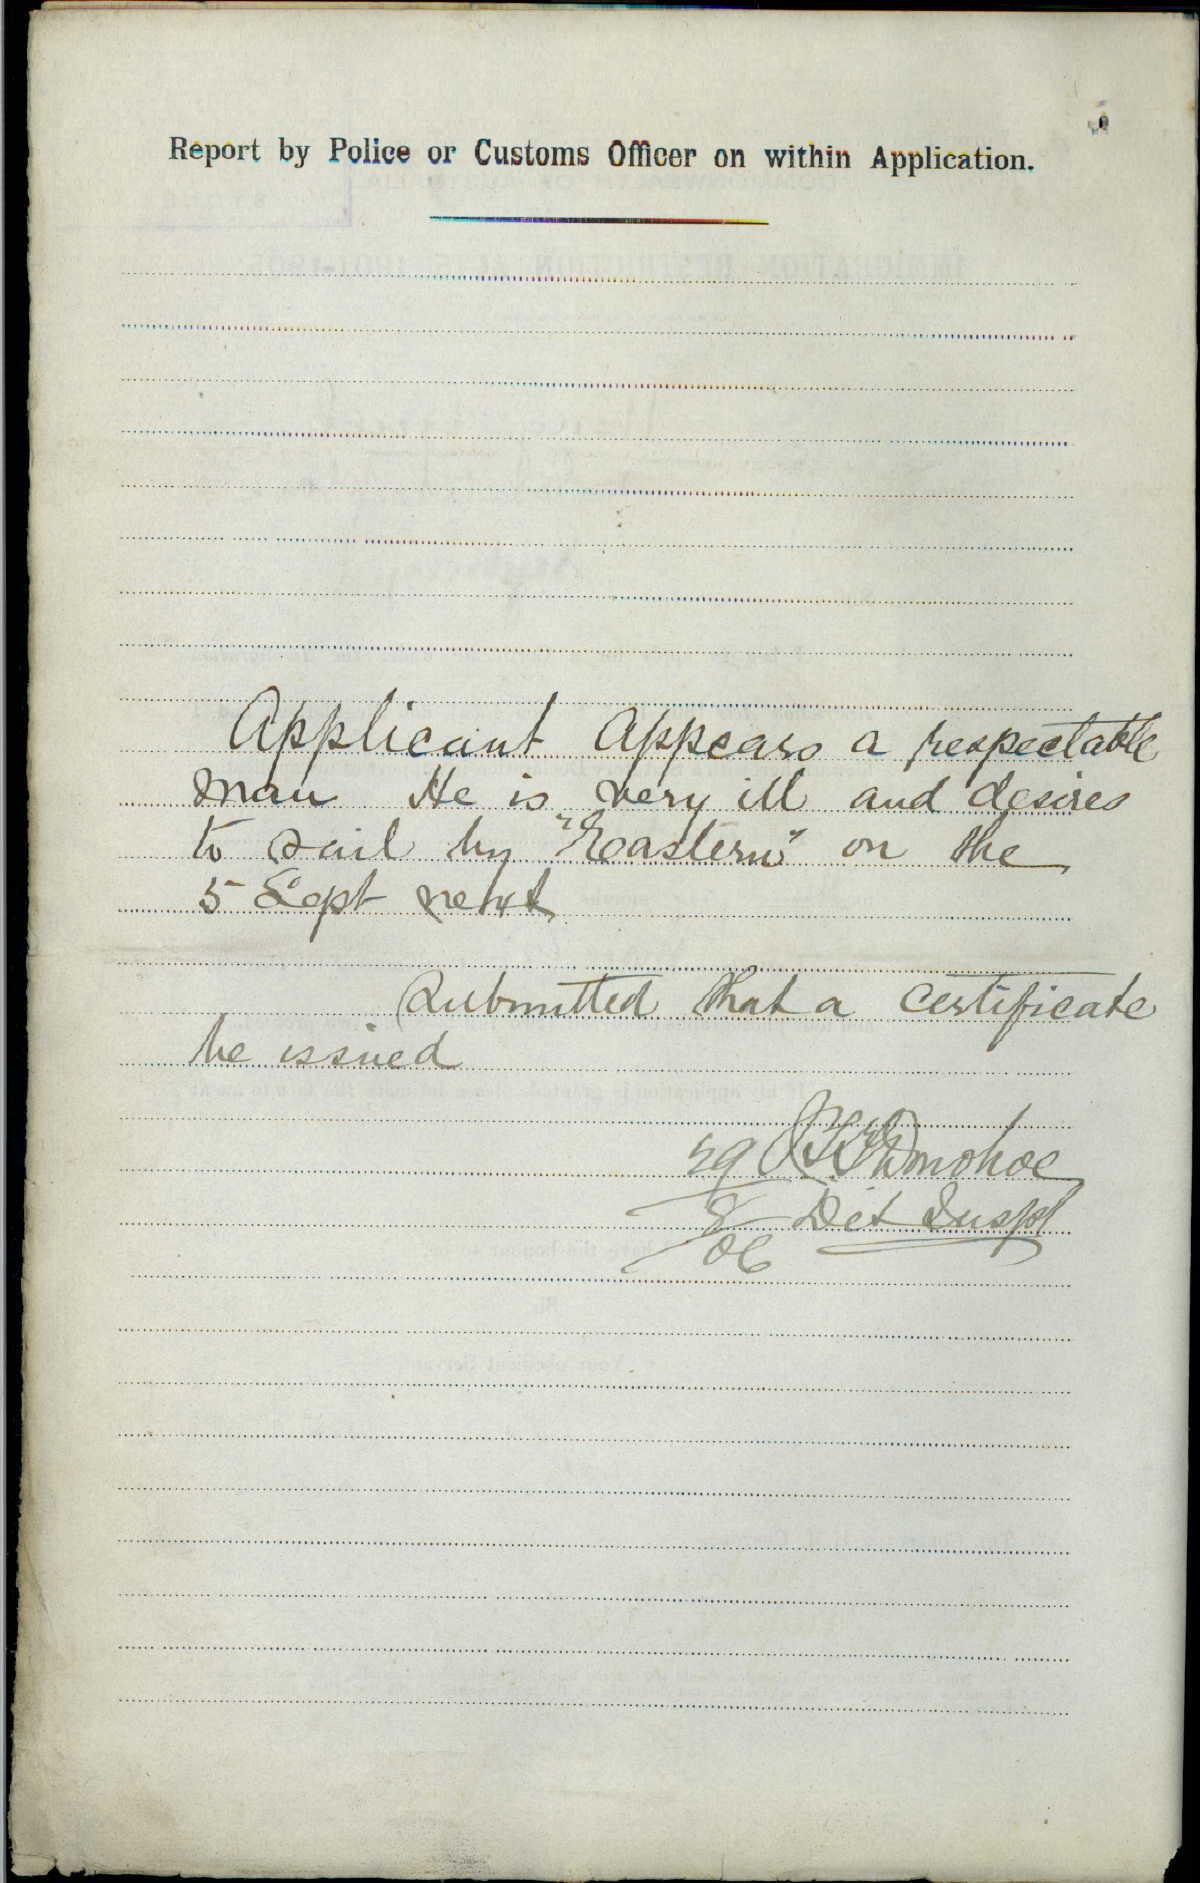 Report by Police or Customs Officer on within Application.
Applicant appears a respectable
man He is very ill and desires
to sail by "Eastern" on the
5 Sept next
Submitted that a certificate
be issued
29 Donohoe
8 Det Inspr
06